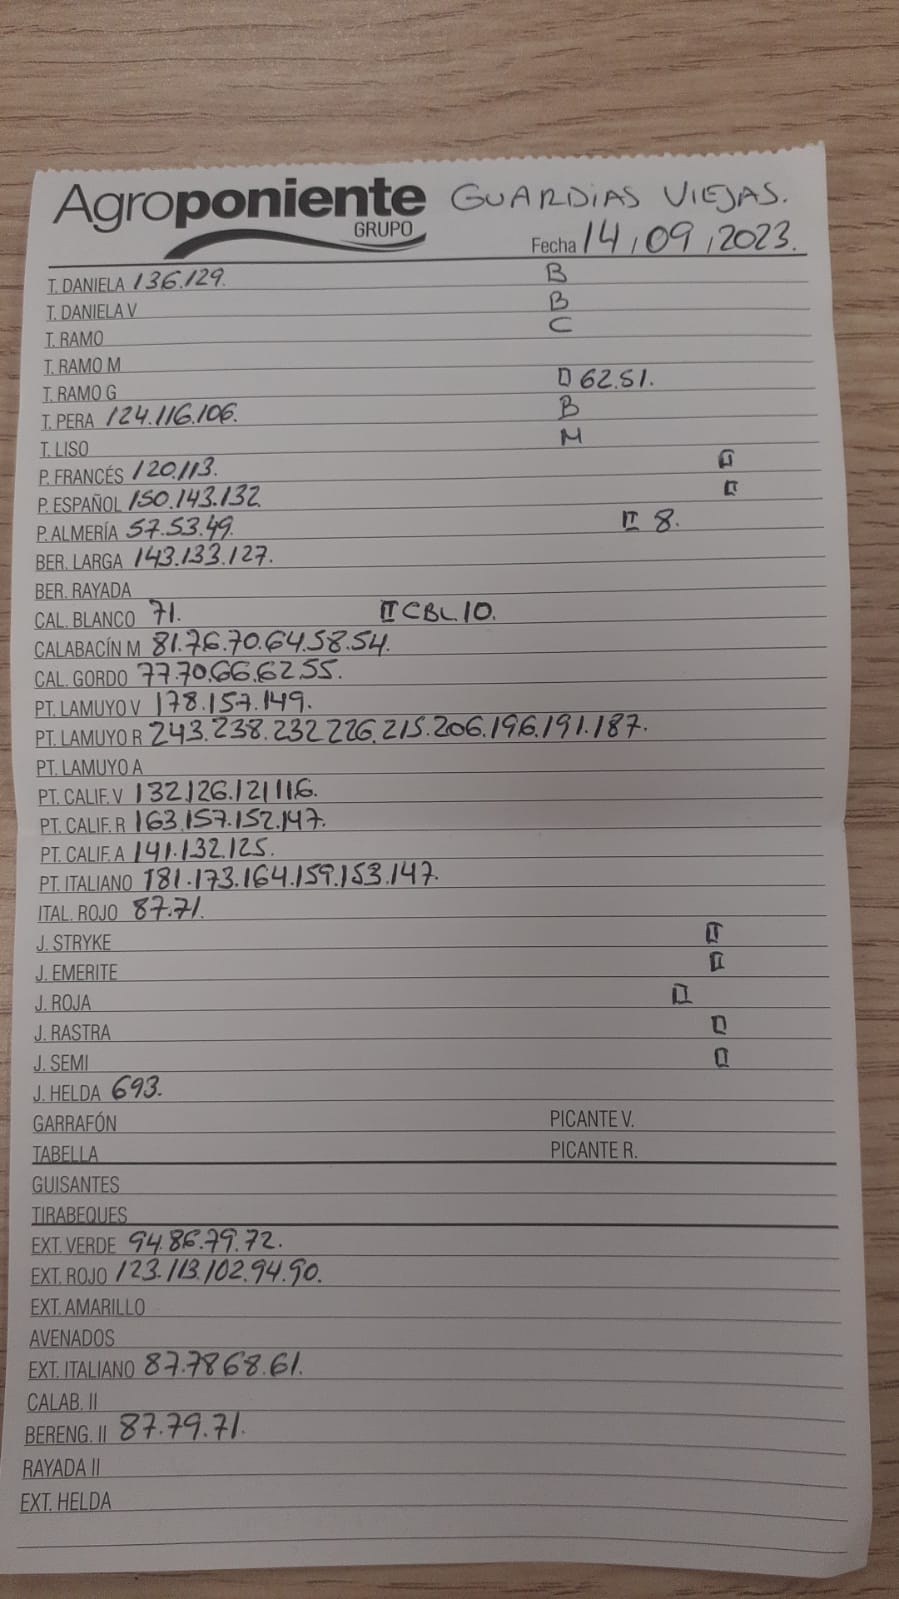 Agroponiente GUARDIAS VIEJAS.
GRUPO
Fecha 14/09/2023.
T. DANIELA 136.129. B
T. DANIELA V B
T. RAMO C
T. RAMO M
T. RAMO G II 62.51.
T. PERA 124.116.106. B
T. LISO M
P. FRANCÉS 120.113. II
P. ESPAÑOL 150.143.132 II
P. ALMERÍA 57.53.49. II 8.
BER. LARGA 143.133.127.
BER. RAYADA
CAL. BLANCO 71. II CBL.10.
CALABACÍN M 81.76.70.64.58.54.
CAL. GORDO 77.70.66.62.55.
PT. LAMUYO V 178.157.149.
PT. LAMUYO R 243.238.232.226.215.206.196.191.187.
PT. LAMUYO A
PT. CALIF. V 132.126.121.116.
PT. CALIF. R 163.157.152.147.
PT. CALIF. A 141.132.125.
PT. ITALIANO 181.173.164.159.153.147.
ITAL. ROJO 87.71.
J. STRYKE II
J. EMERITE II
J. ROJA II
J. RASTRA II
J. SEMI II
J. HELDA 693.
GARRAFÓN PICANTE V.
TABELLA PICANTE R.
GUISANTES
TIRABEQUES
EXT. VERDE 94.86.79.72.
EXT. ROJO 123.113.102.94.90.
EXT. AMARILLO
AVENADOS
EXT. ITALIANO 87.78.68.61.
CALAB. II
BERENG. II 87.79.71.
RAYADA II
EXT. HELDA